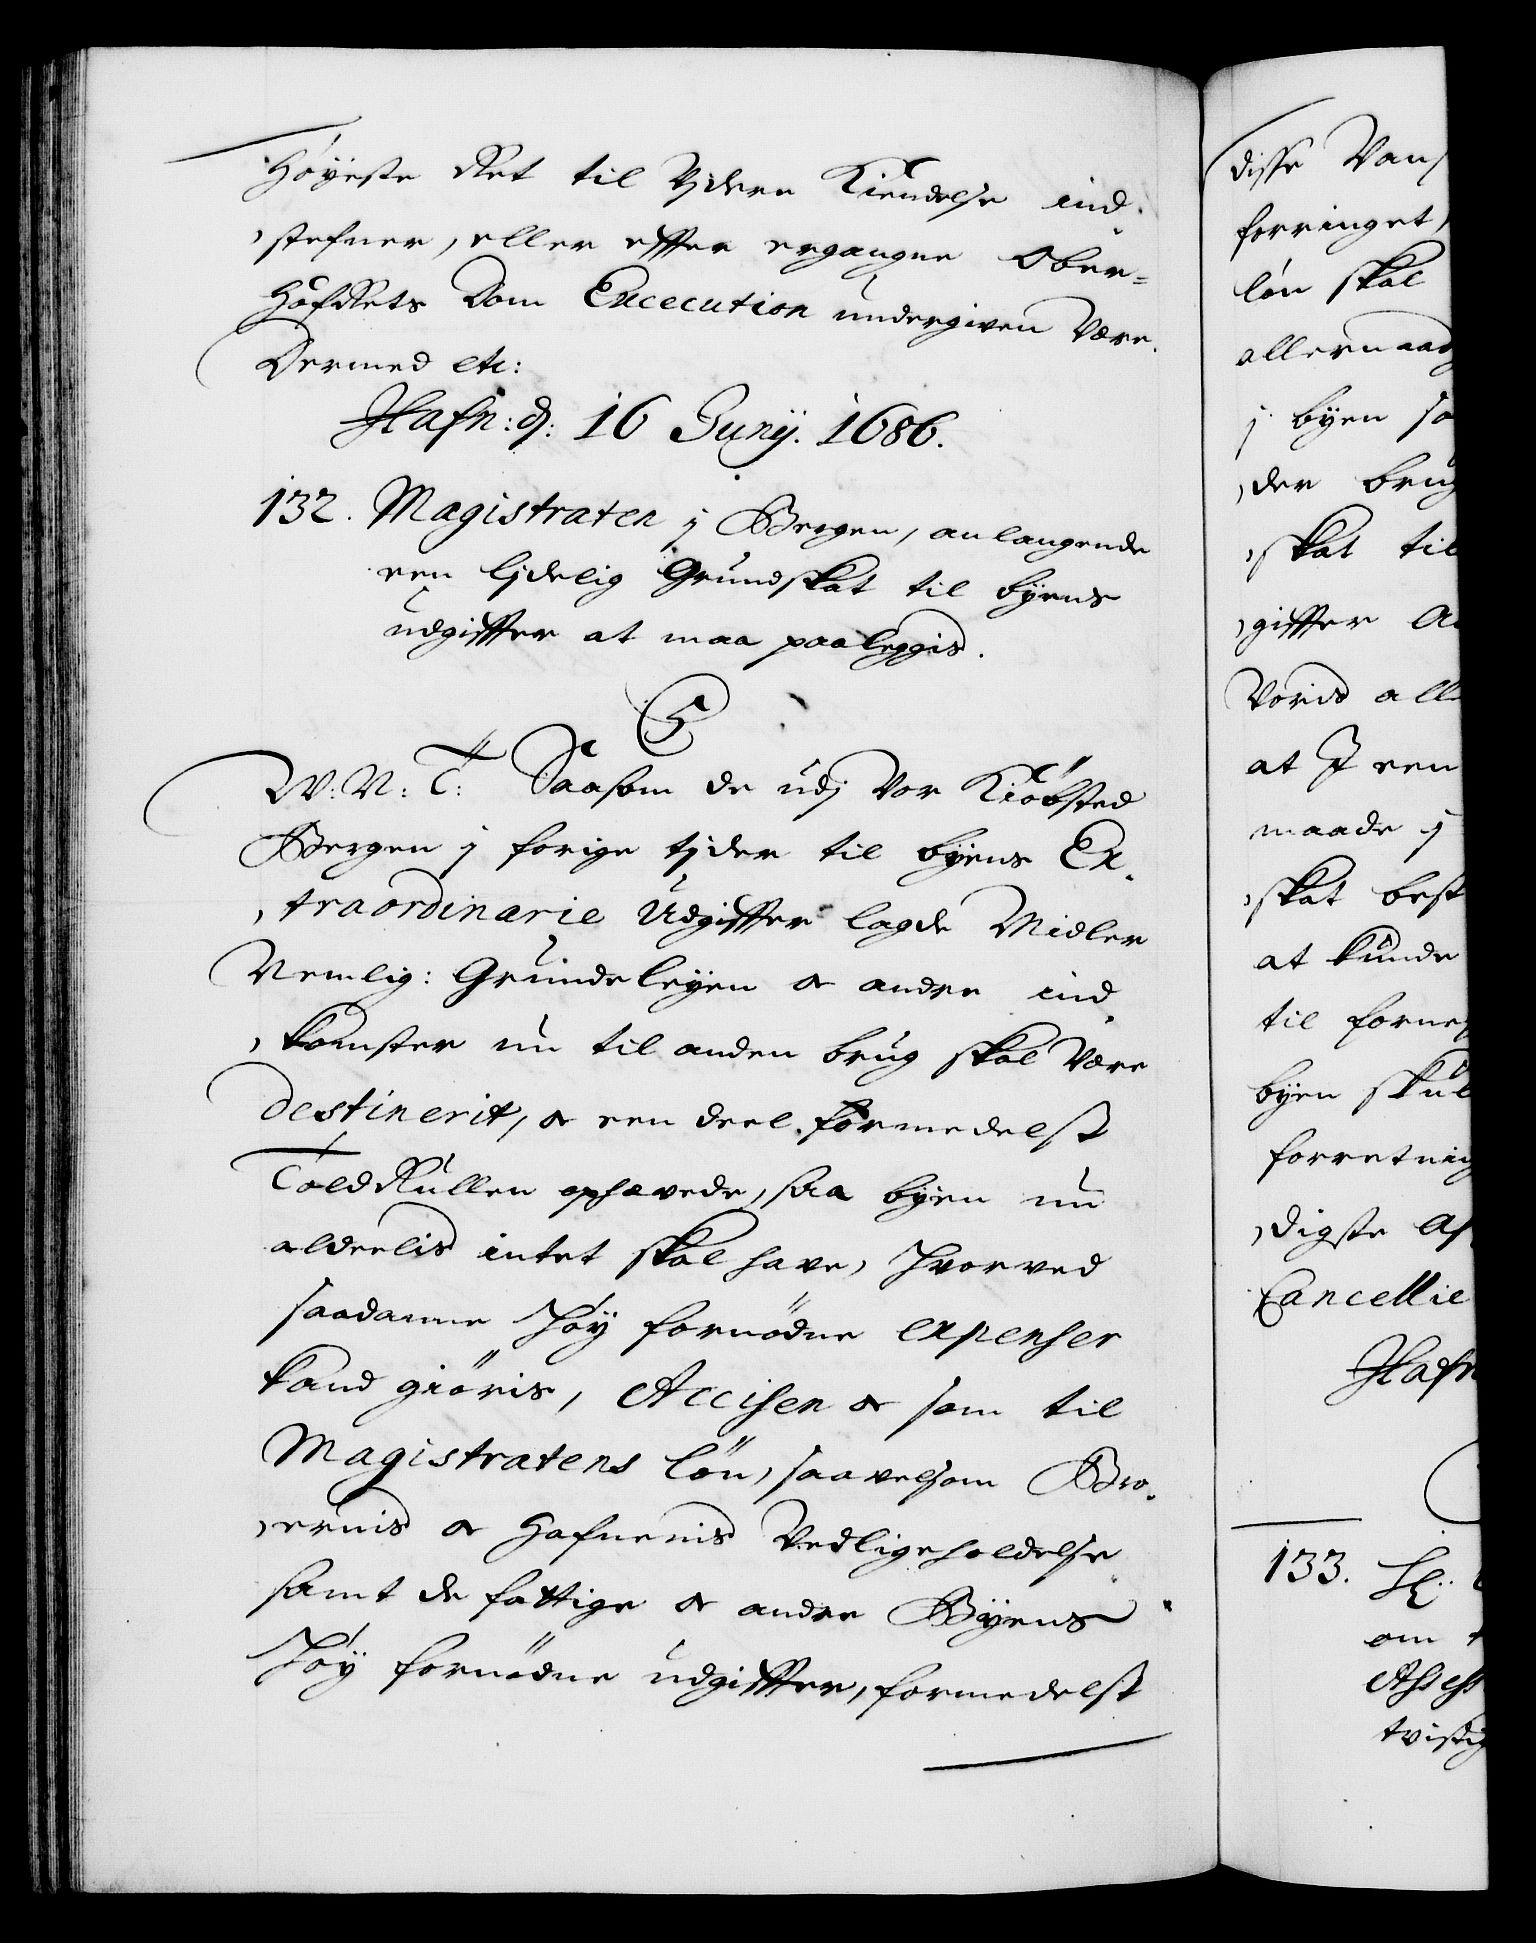 Høyeste Ret til Ydere Kiendelse ind-
stefner, eller effter ergangne Ober=
HofRets Dom Excecution undergiven Være.
Dermed etc:
Hafn: d: 16 Junij. 1686.
132. Magistraten j Bergen, anlangende
een lidelig Grundskat til byens
udgiffter at maa paaleggis.
C5
W: N: T: Saasom de udj Vor Kiøbsted
Bergen j forige tjder til byens Ex-
traordinarie Udgiffter lagde Midler
Nemlig: Grundeleyen og andre ind-
komster nu til anden brug skal Være
destinerit, og een deel formedelst
ToldRullen ophævede, saa byen nu
aldeelis intet skal have, hvorved
saadanne høy fornødne expenser
kand giøris, Accisen og som til
Magistratens løn, saavelsom Bro-
ernis og Hafnenis Vedligeholdelse
samt de fattige og andre Byens
høy fornødne udgiffter, formedelst
disse Van
forringet,
løn skal
allernaad
j byen so
der brug
skat til
giffter A
Voris all
at I een
maade j
skat best
at kunde
til forne
byen skul
forretning
digste Af
Cancellie
Hafn
133. Hr:
om
Assess
tvistig